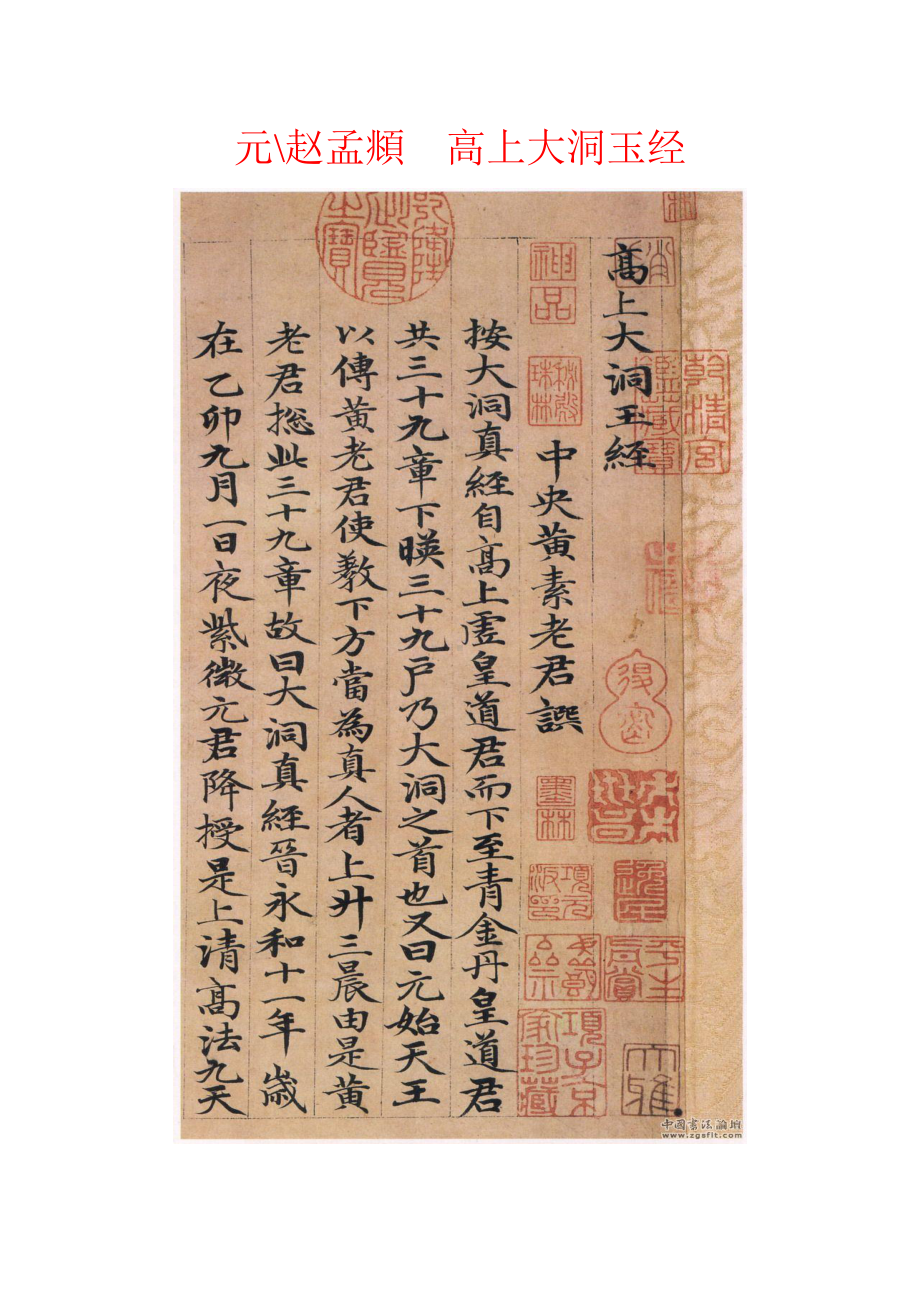 元\赵孟頫　高上大洞玉经
高上大洞玉經
中央黃素老君譔
按大洞真經自高上虛皇道君而下至青金丹皇道君
共三十九章下暎三十九戶乃大洞之首也又曰元始天王
以傳黃老君使教下方當為真人者上升三晨由是黃
老君揔此三十九章故曰大洞真經晉永和十一年歲
在乙卯九月一日夜紫微元君降授是上清高法九天
乾隆御覽之寶
神品
乾清宮鑑藏寶
墨林
項子京家珍藏
平生真賞
中國書法論壇
www.zgsflt.com